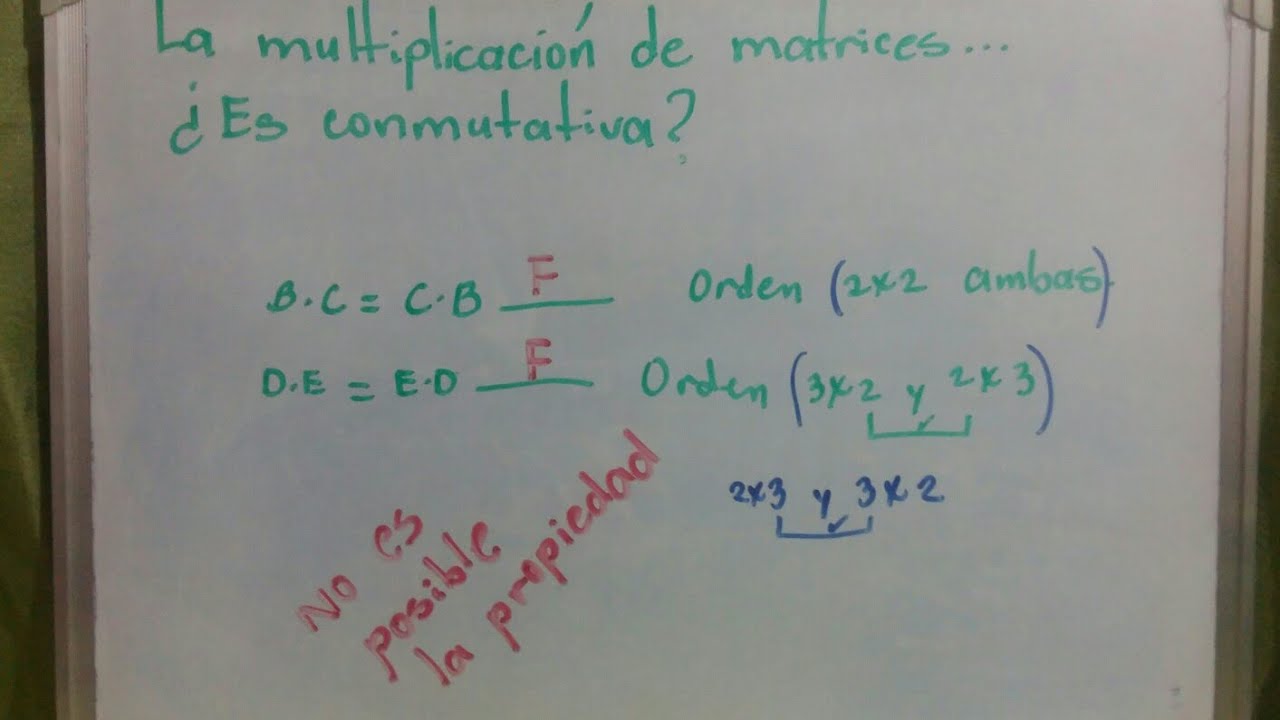 La multiplicación de matrices...
¿Es conmutativa?
B.C = C.B F Orden (2x2 ambas)
D.E = E.D F Orden (3x2 y 2x3)
2x3 y 3x2
No es
posible
la propiedad